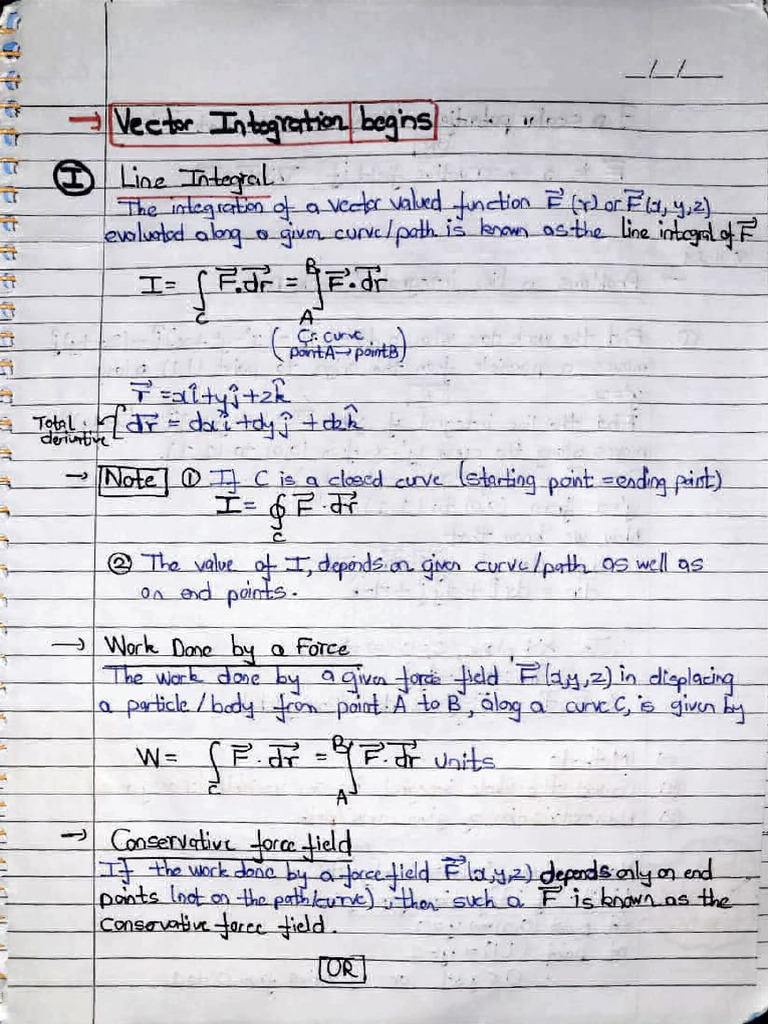 _/_/_
→ Vector Integration begins
I Line Integral
The integration of a vector valued function F⃗(r) or F⃗(x,y,z)
evaluated along a given curve/path is known as the line integral of F⃗
I = ∫_C F⃗.dr⃗ = ∫_A^B F⃗.dr⃗
(C: curve
point A → point B)
r⃗ = xî+yĵ+zk̂
Total derivative { dr⃗ = dxî+dyĵ+dzk̂
→ Note ① If C is a closed curve (starting point = ending point)
I = ∮_C F⃗.dr⃗
② The value of I, depends on given curve/path as well as
on end points.
→ Work Done by a Force
The work done by a given force field F⃗(x,y,z) in displacing
a particle/body from point A to B, along a curve C, is given by
W = ∫_C F⃗.dr⃗ = ∫_A^B F⃗.dr⃗ units
→ Conservative force field
If the work done by a force field F⃗(x,y,z) depends only on end
points (not on the path/curve), then such a F⃗ is known as the
conservative force field.
OR